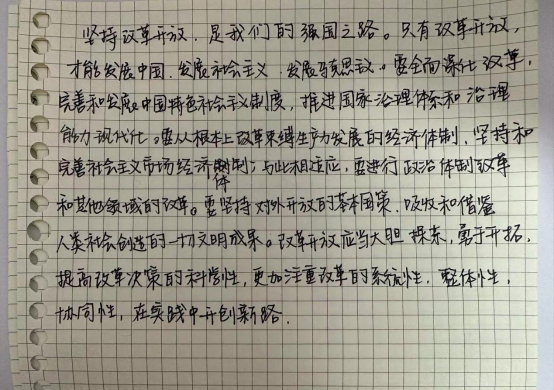 坚持改革开放，是我们的强国之路。只有改革开放，
才能发展中国、发展社会主义、发展马克思主义。要全面深化改革，
完善和发展中国特色社会主义制度，推进国家治理体系和治理
能力现代化。要从根本上改革束缚生产力发展的经济体制，坚持和
完善社会主义市场经济体制；与此相适应，要进行政治体制改革
和其他领域的改革。要坚持对外开放的基本国策，吸收和借鉴
人类社会创造的一切文明成果。改革开放应当大胆探索，勇于开拓，
提高改革决策的科学性，更加注重改革的系统性、整体性、
协同性，在实践中开创新路。